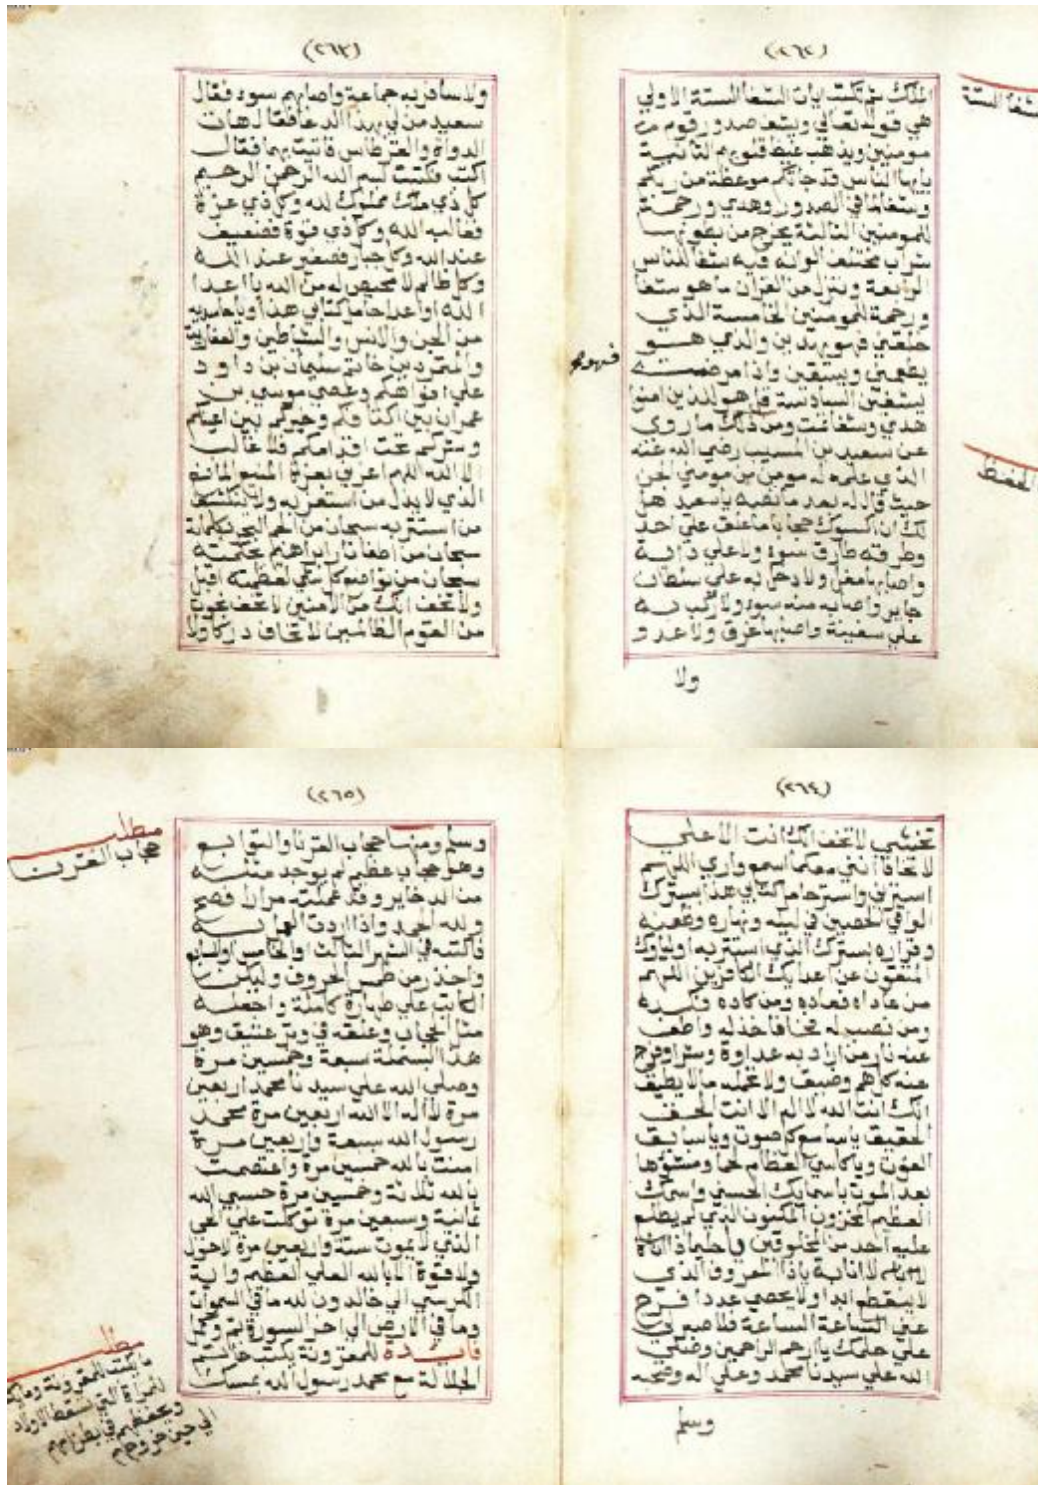 (٢٦٢)
الملك ثم تكتب ايات الشفا الستة الاولي
هي قوله تعالي ويشف صدور قوم
مومنين ويذهب غيظ قلوبهم الثانية
يايها الناس قد جاتكم موعظة من ربكم
وشفا لما في الصدور وهدي ورحمة
للمومنين الثالثة يخرج من بطونها
شراب مختلف الوانه فيه شفا للناس
الرابعة وننزل من القران ما هو شفا
ورحمة للمومنين الخامسة الذي
خلقني فهو يهدين والذي هو
يطعمني ويسقين واذا مرضت
يشفين السادسة قل هو للذين امنوا
هدي وشفا ومن ذلك ما روي
عن سعيد بن المسيب رضي الله عنه
الذي علمه له مومن من مومني الجن
حيث قال له بعد ما لقيه يا سعيد هل
لك ان اكسوك حجابا ما علق علي احد
وطرقه طارق سوء ولا علي دابة
واصابها مغل ولا دخل به علي سلطان
جاير واصابه منه سوء ولا ركب به
علي سفينة واصابها غرق ولا عدو
ولا
شفا الستة
الحفظ
فهو
(٢٦٣)
ولا سافر به جماعة واصابهم سوء فقال
سعيد من لي بهذا الدعا فقال هات
الدواة والقرطاس فاتيت بهما فقال
اكتب فكتبت بسم الله الرحمن الرحيم
كل ذي ملك مملوك لله وكل ذي عزة
فغالبه الله وكل ذي قوة فضعيف
عند الله وكل جبار فصغير عند الله
وكل ظالم لا محيص له من الله يا اعدا
الله او اعدا حامل كتابي هذا
من الجن والانس والشياطين
والمتمردين خاتم سليمان بن داود
علي افواهكم وعصي موسي بن
عمران بين اكتافكم وخيركم بين اعينكم
وشركم تحت اقدامكم فلا غالب
الا الله اللهم اعزني بعزة المنيع المانع
الذي لا يذل من استعز به ولا ينكشف
من استتر به سبحان من الجم البحر بكلماته
سبحان من اطفا نار ابراهيم بحكمته
سبحان من تواضع كل شي لعظمته اقبل
ولا تخف انك من الامنين لا تخف نجوت
من القوم الظالمين لا تخاف دركا ولا
(٢٦٤)
تخشي لا تخف انك انت الاعلي
لا تخافا انني معكما اسمع واري اللهم
استرني واستر حامل كتابي هذا بسترك
الوافي الحصين في ليله ونهاره وظعنه
وقراره بسترك الذي استتر به اولياوك
المتقون عن اعدايك الكافرين اللهم
من عاداه فعاده ومن كاده فكده
ومن نصب له فخا فخذله واطف
عنه نار من اراد به عداوة وشرا وفرج
عنه كل هم وضيق ولا تحمله ما لا يطيق
انك انت الله لا اله الا انت الحق
الحقيق يا سامع كل صوت ويا سابق
الفوت ويا كاسي العظام لحما ومنشزها
بعد الموت باسمايك الحسني واسمك
العظيم المخزون المكنون الذي لم يطلع
عليه احد من المخلوقين يا حليما ذا اناة
لا اناة يا ذا المعروف الذي
لا ينقطع ابدا ولا يحصي عددا فرج
عني الساعة الساعة فلا صبر لي
علي حلمك يا ارحم الراحمين وصلي
الله علي سيدنا محمد وعلي اله وصحبه
وسلم
(٢٦٥)
وسلم ومنها حجاب القرنا والتوابع
وهو حجاب عظيم لم يوجد مثله
من الدخاير وقد عملته مرارا فصح
ولله الحمد واذا اردت العمل به
فاكتبه في الشهر الثالث والخامس او السابع
واحذر من طمس الحروف وليكن
الكاتب علي طهارة كاملة واجعله
مثل الحجاب وعلقه في وتر عتيق وهو
هذا البسملة سبعة وخمسين مرة
وصلي الله علي سيدنا محمد اربعين
مرة لا اله الا الله اربعين مرة محمد
رسول الله سبعة واربعين مرة
امنت بالله خمسين مرة واعتصمت
بالله ثلاثة وخمسين مرة حسبي الله
ثمانية وسبعين مرة توكلت علي الحي
الذي لا يموت ستة واربعين مرة لا حول
ولا قوة الا بالله العلي العظيم واية
الكرسي الي خالدون لله ما في السموات
وما في الارض الي اخر السورة
فايدة للمقرونة يكتب خاتم
الجلالة مع محمد رسول الله بمسك
مطلب
حجاب القرن
مطلب
ما يكتب للمقرونة
للمراة التي تسقط الاولاد
ويحفظهم في بطن امهم
الي حين خروجهم